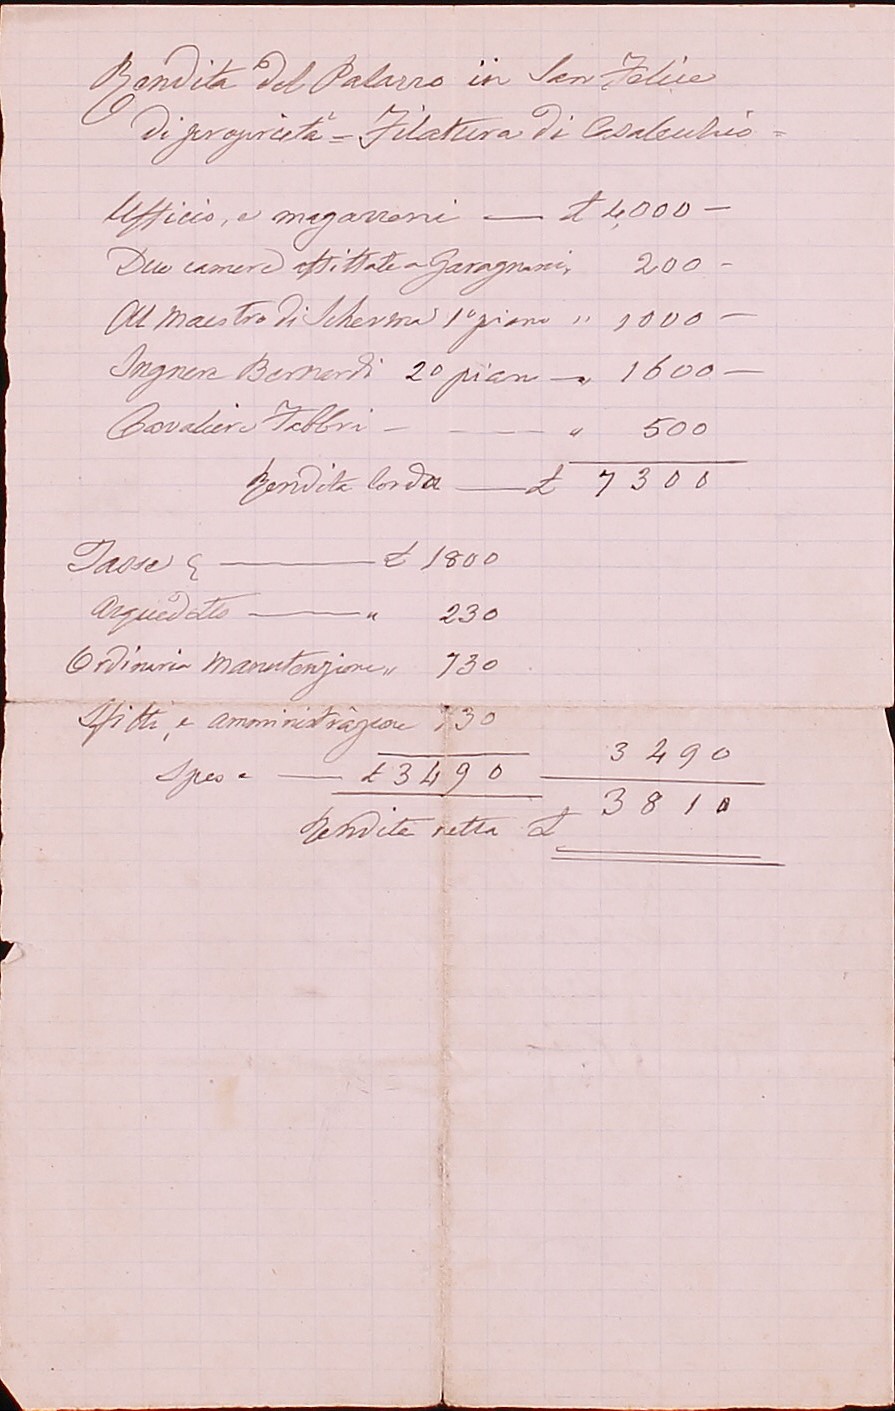 Rendita del Palazzo in San Felice
di proprietà = Filatura di Casalecchio =
Ufficio, e magazzeni — £ 4,000 —
Due camere affittate a Garagnani, 200 -
Al Maestro di Scherma 1° piano " 1000 —
Ingnere Bernardi 2° piano — " 1600 —
Cavaliere Fabbri - — " 500
Rendita lorda — £ 7300
Tasse — £ 1800
Acquedotto — " 230
Ordinaria manutenzione " 730
Sfitti, e amministrazione 730
3490
Spese — £ 3490
3810
Rendita netta £